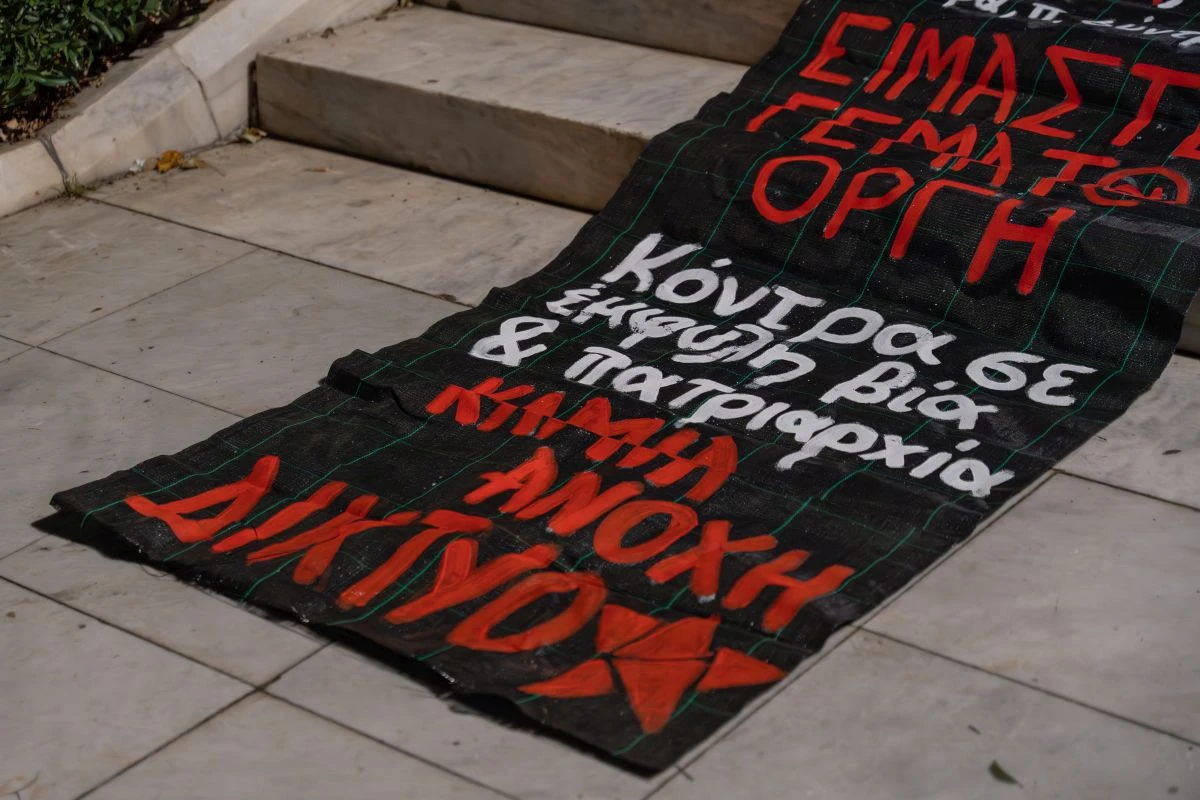 ΕΙΜΑΣΤΕ
ΓΕΜΑΤ@
ΟΡΓΗ
Κόντρα σε
έμφυλη βία
& πατριαρχία
ΚΑΜΙΑ
ΑΝΟΧΗ
ΔΙΚΤΥΟ